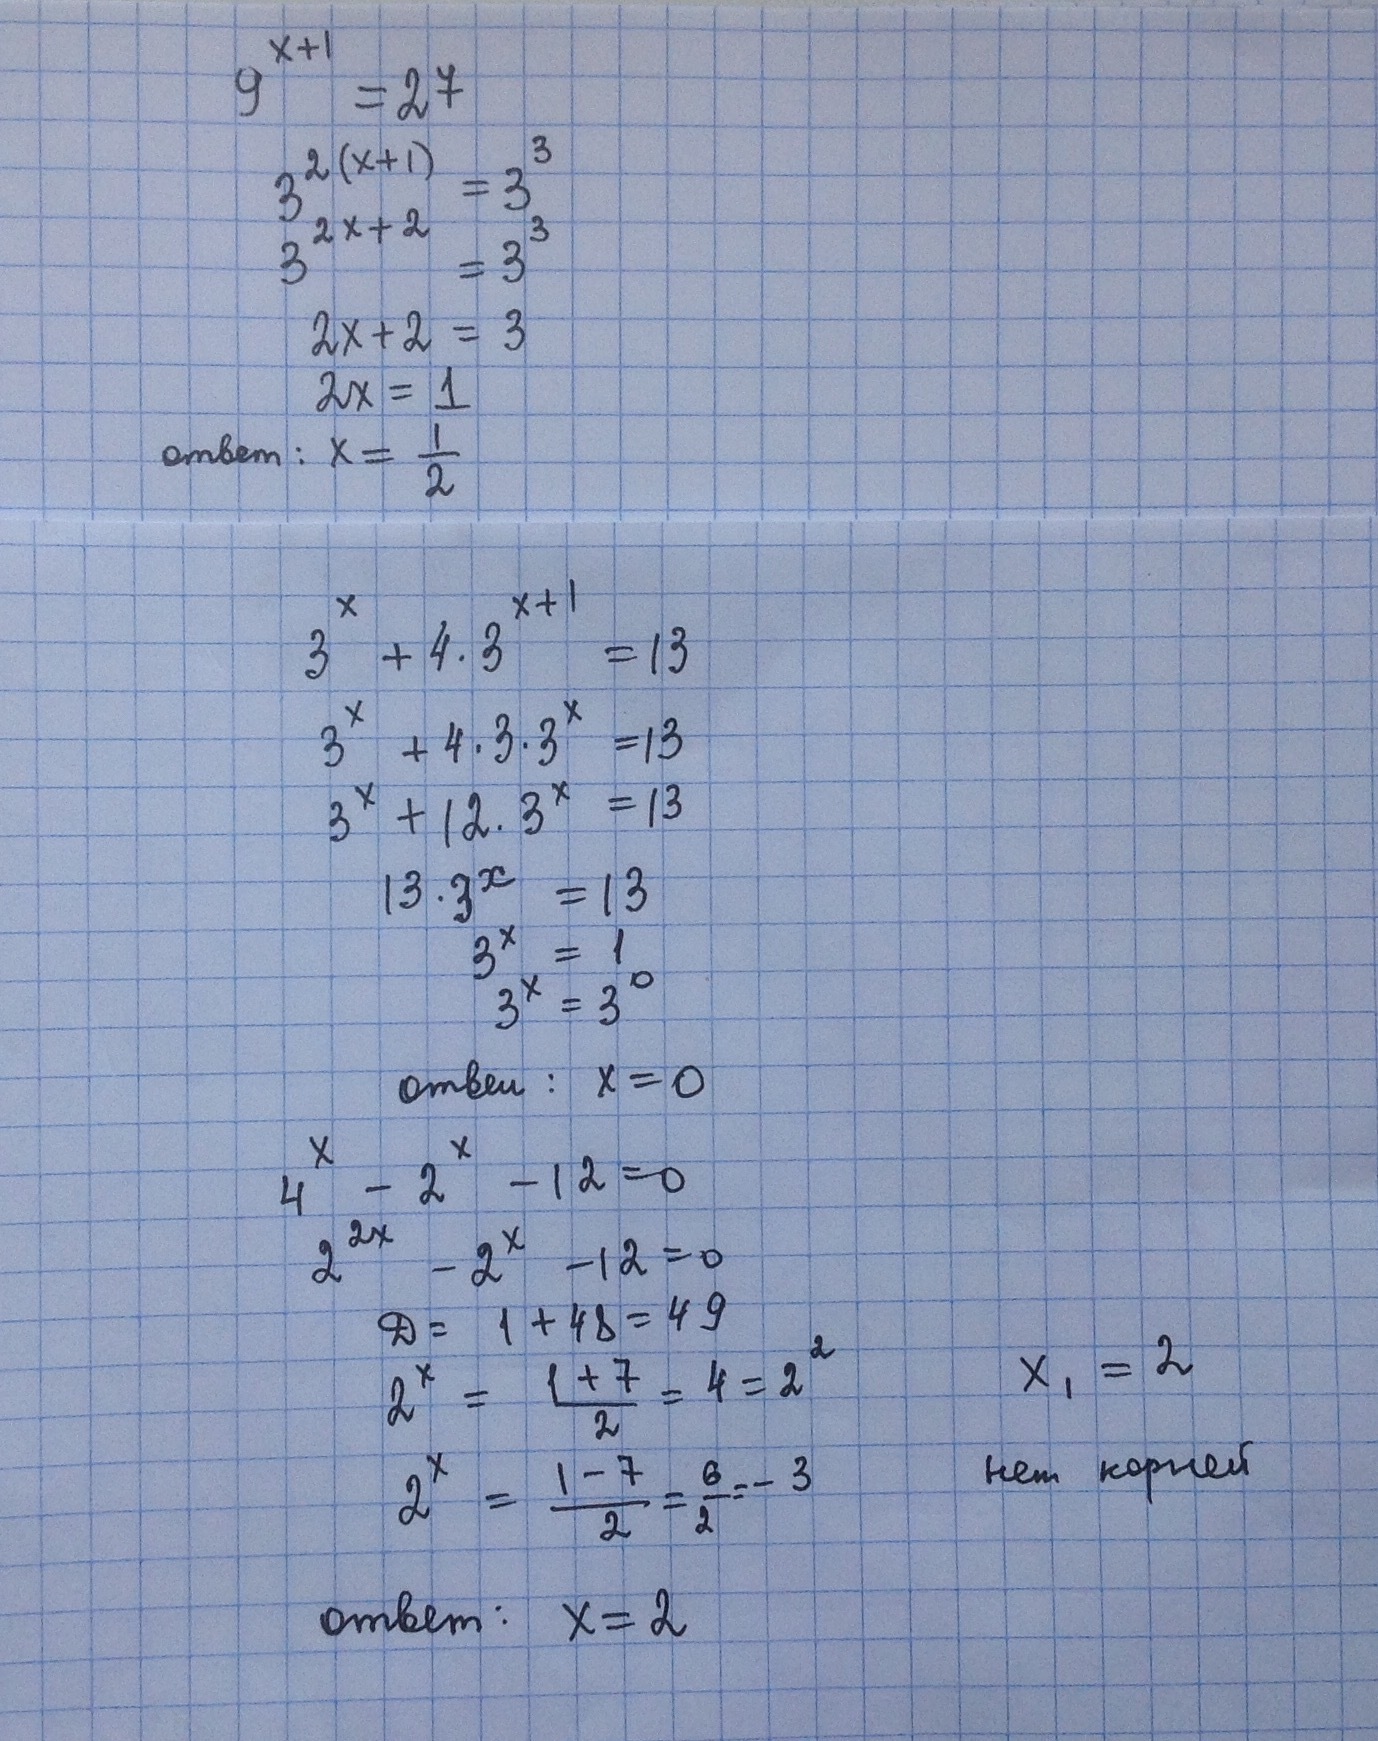 9^{x+1} = 27
3^{2(x+1)} = 3^3
3^{2x+2} = 3^3
2x+2 = 3
2x = 1
ответ: x = 1/2
3^x + 4·3^{x+1} = 13
3^x + 4·3·3^x = 13
3^x + 12·3^x = 13
13·3^x = 13
3^x = 1
3^x = 3^0
ответ: x = 0
4^x - 2^x - 12 = 0
2^{2x} - 2^x - 12 = 0
D = 1 + 48 = 49
2^x = (1+7)/2 = 4 = 2^2 x_1 = 2
2^x = (1-7)/2 = 6/2 = -3 нет корней
ответ: x = 2